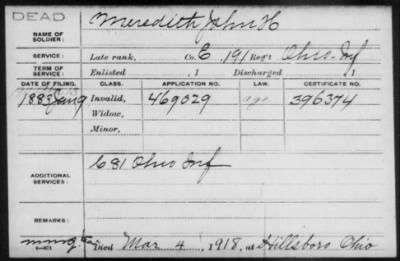 DEAD
NAME OF SOLDIER: Meredith John H
SERVICE: Late rank, Co. E, 191 Reg't Ohio Inf
TERM OF SERVICE: Enlisted , 1 Discharged , 1
DATE OF FILING. CLASS. APPLICATION NO. LAW. CERTIFICATE NO.
1883 Invalid, 469029 396374
Widow,
Minor,
ADDITIONAL SERVICES: Ohio Inf
REMARKS:
Died Mar 4, 1918, at Hillsboro Ohio